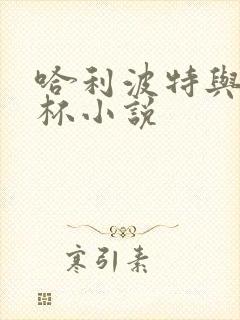 哈利波特與
杯小說
寒引素